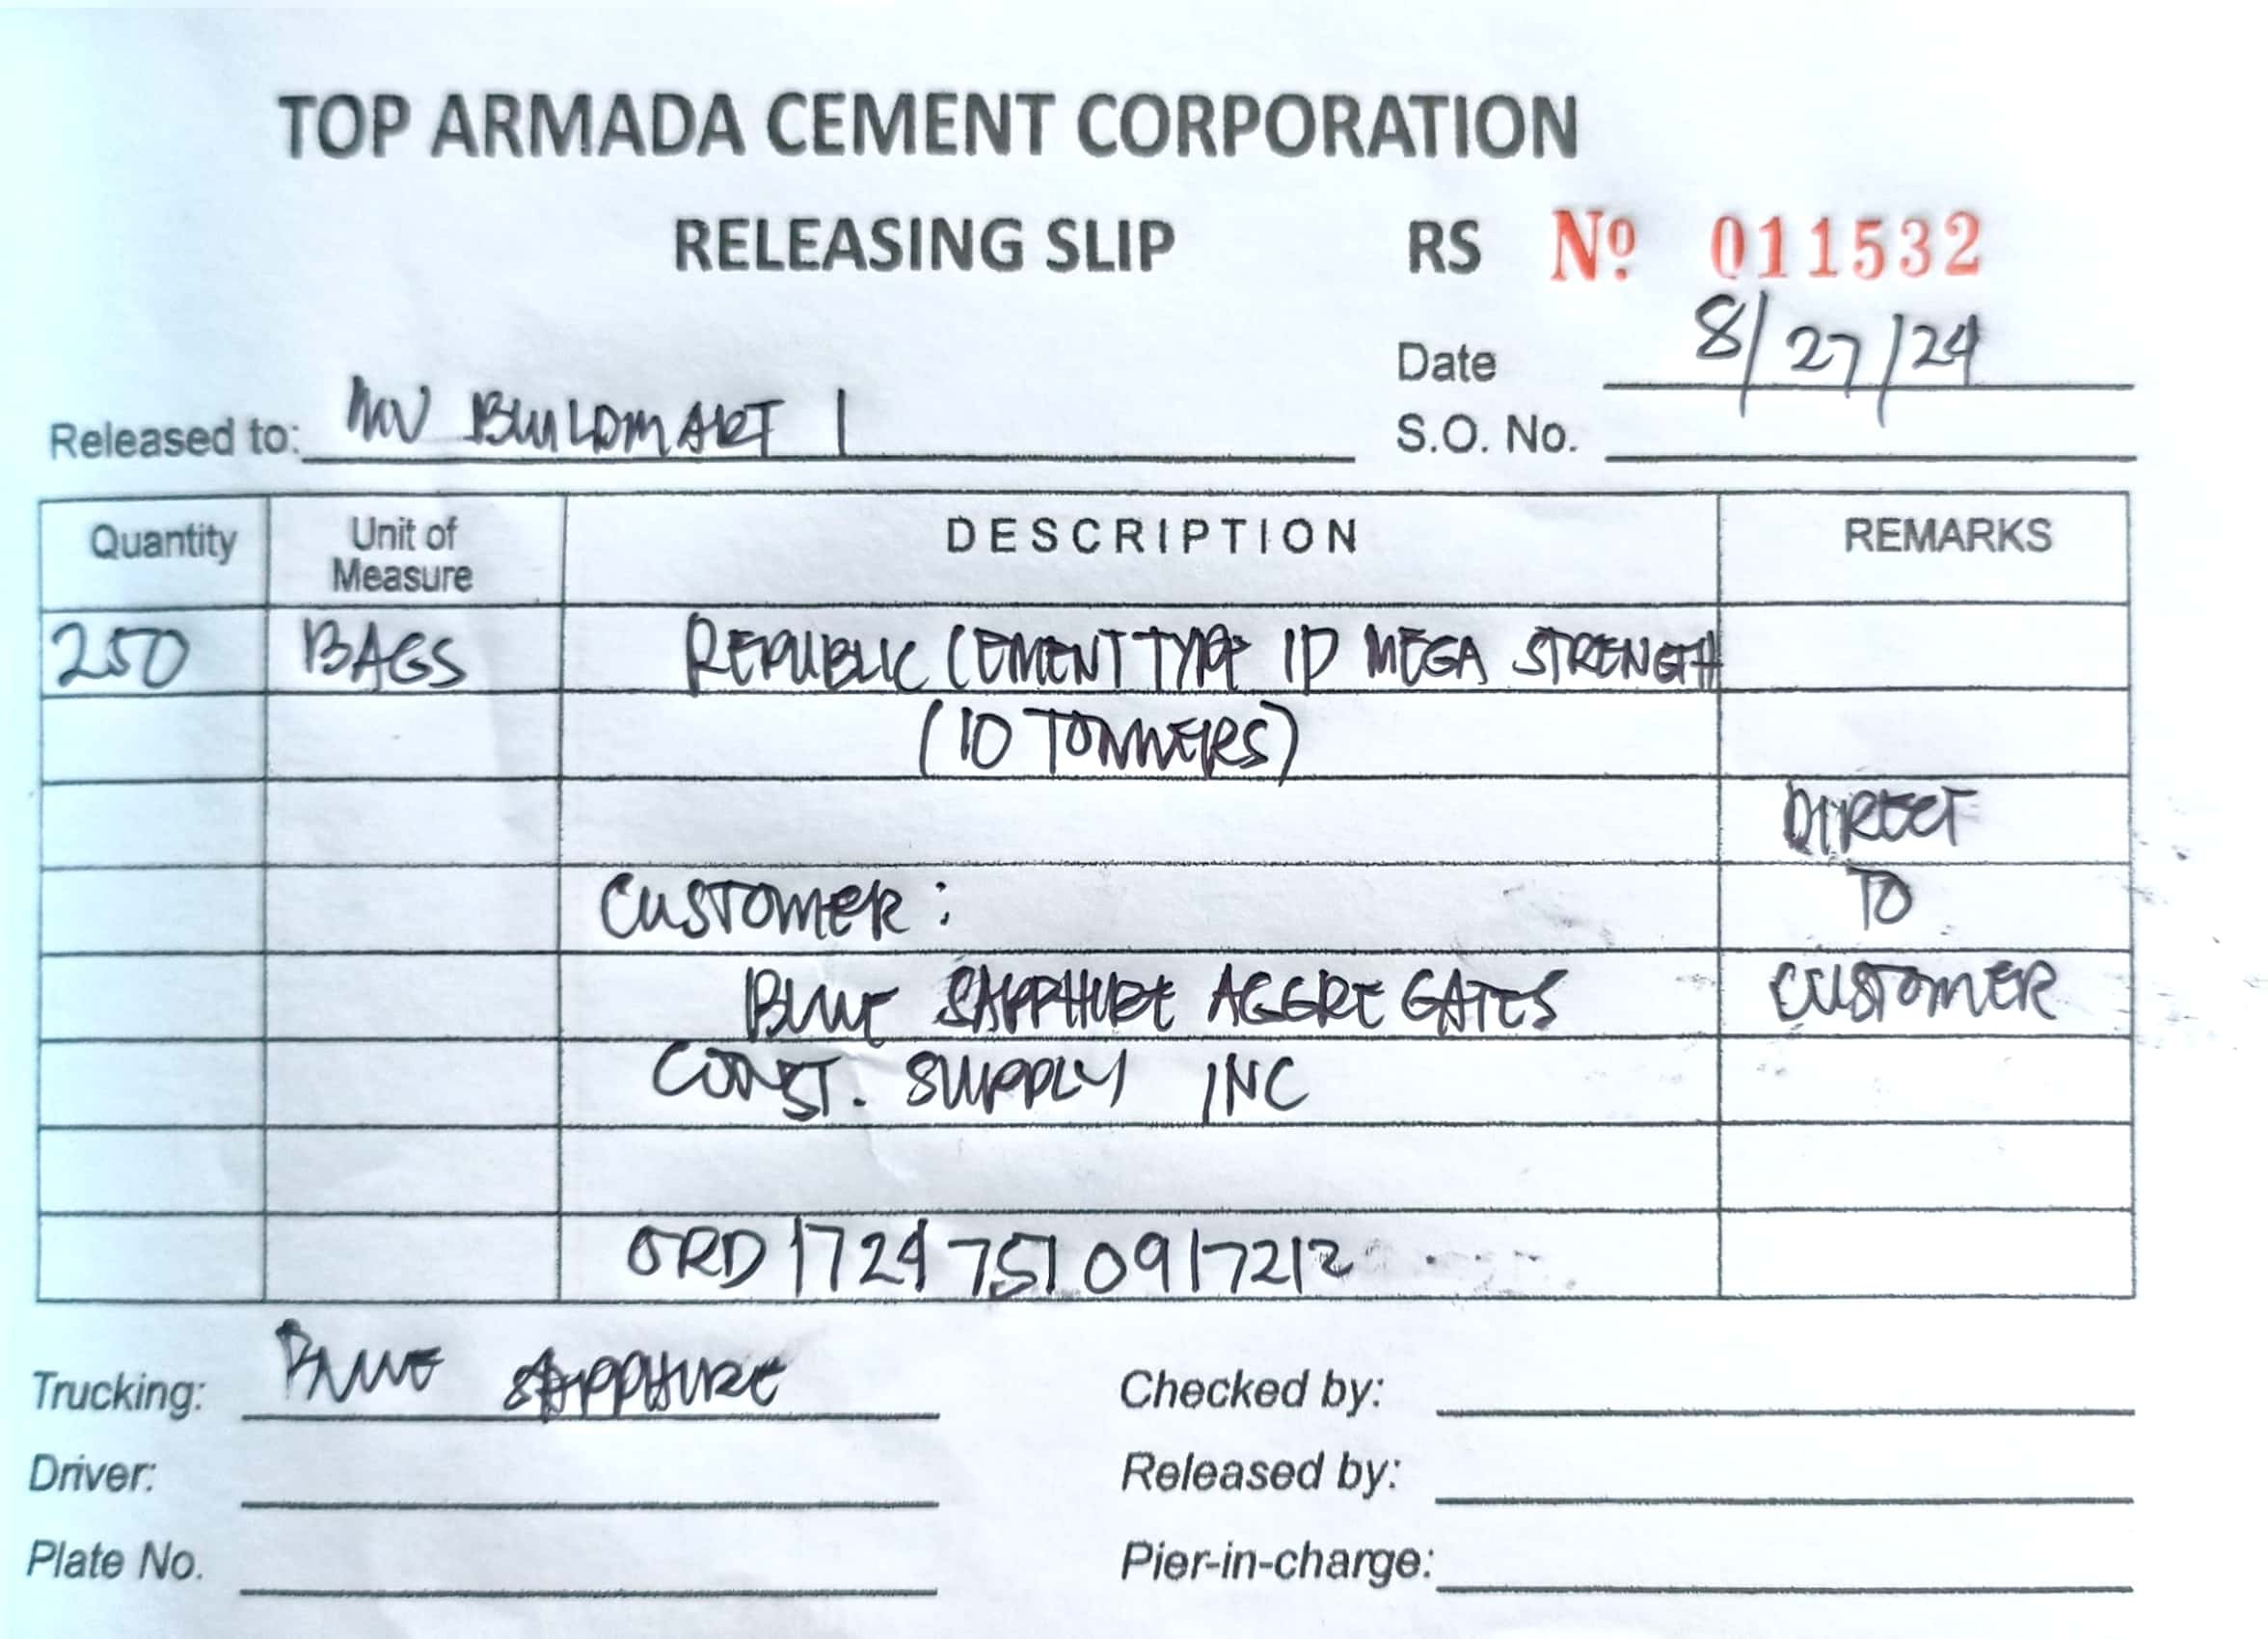 TOP ARMADA CEMENT CORPORATION
RELEASING SLIP RS Nº 011532
Date 8/27/24
Released to: MV BUILDMART 1 S.O. No.
Quantity Unit of Measure DESCRIPTION REMARKS
250 BAGS REPUBLIC CEMENT TYPE 1P MEGA STRENGTH
(10 TONNERS)
DIRECT
CUSTOMER: TO
BLUE SAPPHIRE AGGREGATES CUSTOMER
CONST. SUPPLY INC
ORD17247510917212
Trucking: BLUE SAPPHIRE Checked by:
Driver: Released by:
Plate No. Pier-in-charge: